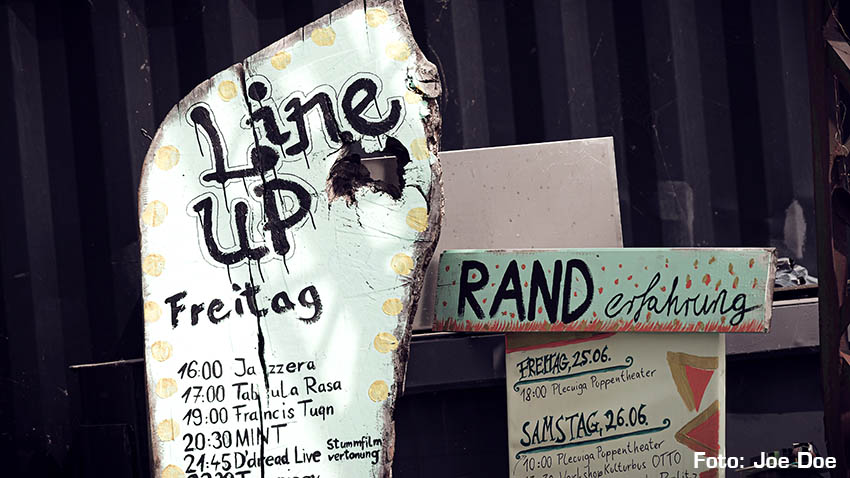 Line
up
Freitag
16:00 Jazzera
17:00 Tabula Rasa
19:00 Francis Tuqn
20:30 MINT
21:45 D'dread Live Stummfilm
vertonung
RAND erfahrung
FREITAG, 25.06.
18:00 Plecuiga Poppentheater
SAMSTAG, 26.06.
10:00 Plecuiga Poppentheater
Workshop Kulturbus OTTO
Foto: Joe Doe